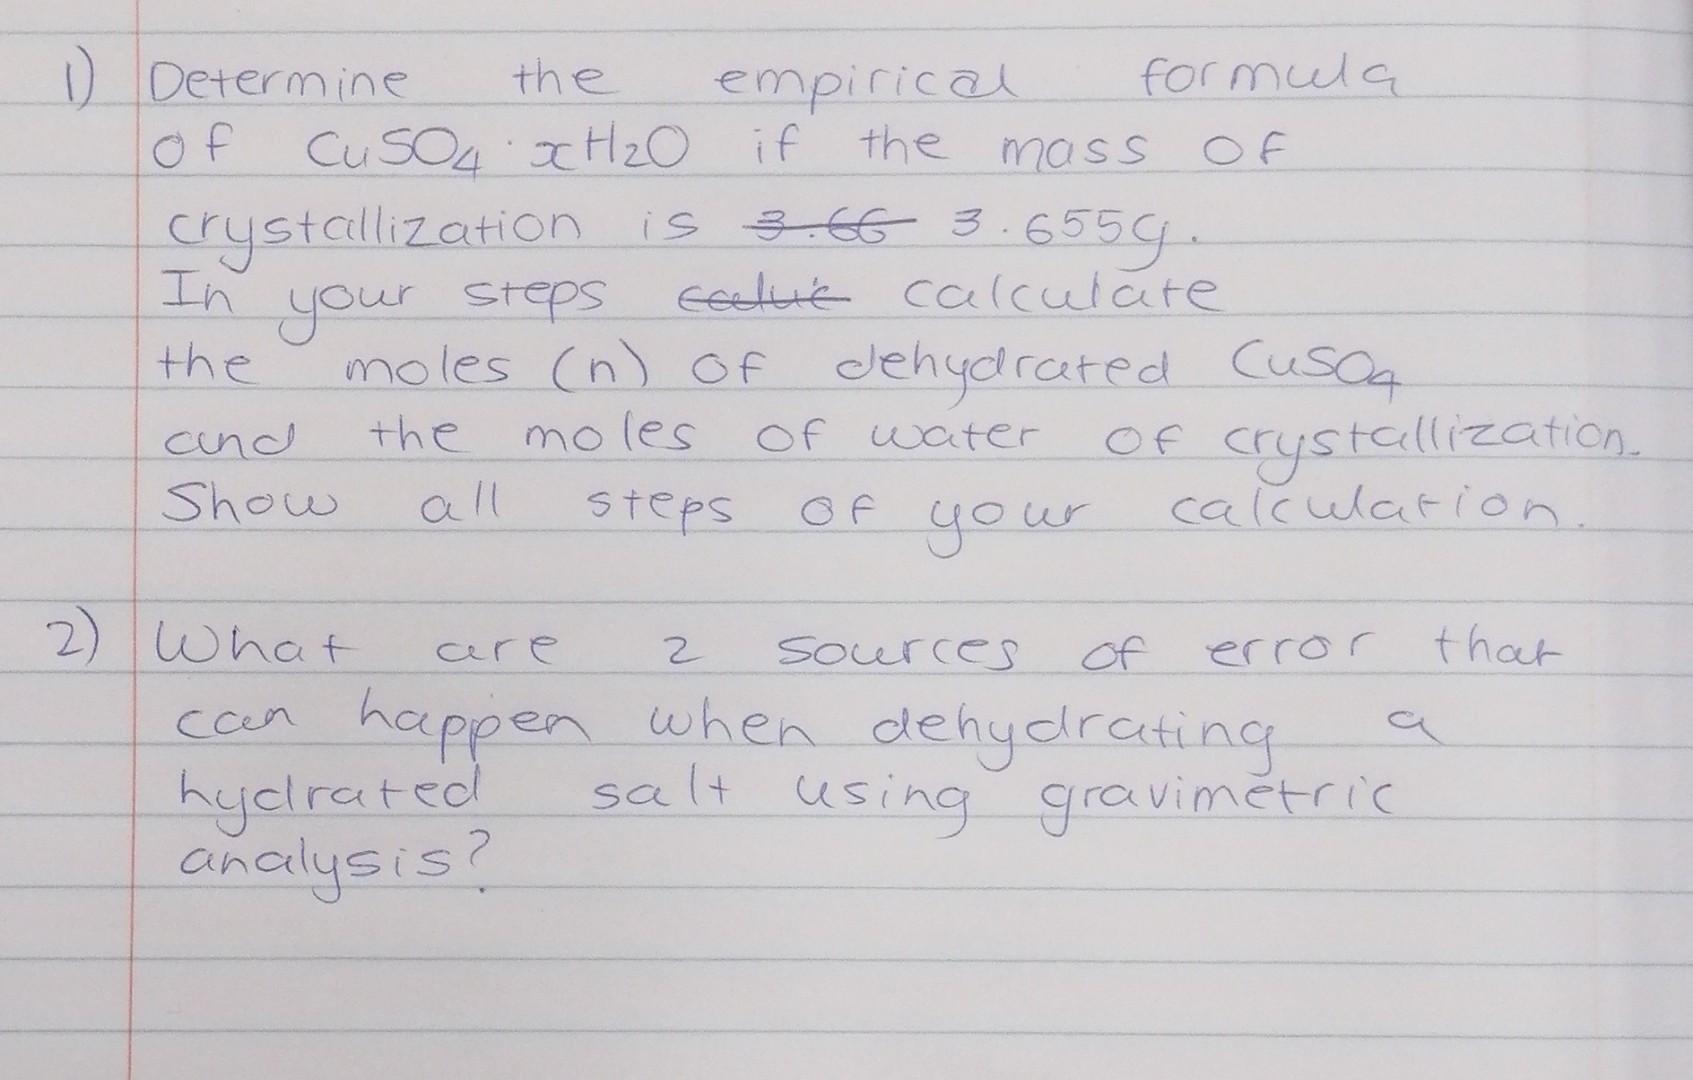 1) Determine the empirical formula
of CuSO4 · xH2O if the mass of
crystallization is 3.66 3.655g.
In your steps calculate
the moles (n) of dehydrated CuSO4
and the moles of water of crystallization.
Show all steps of your calculation.
2) What are 2 sources of error that
can happen when dehydrating a
hydrated salt using gravimetric
analysis?